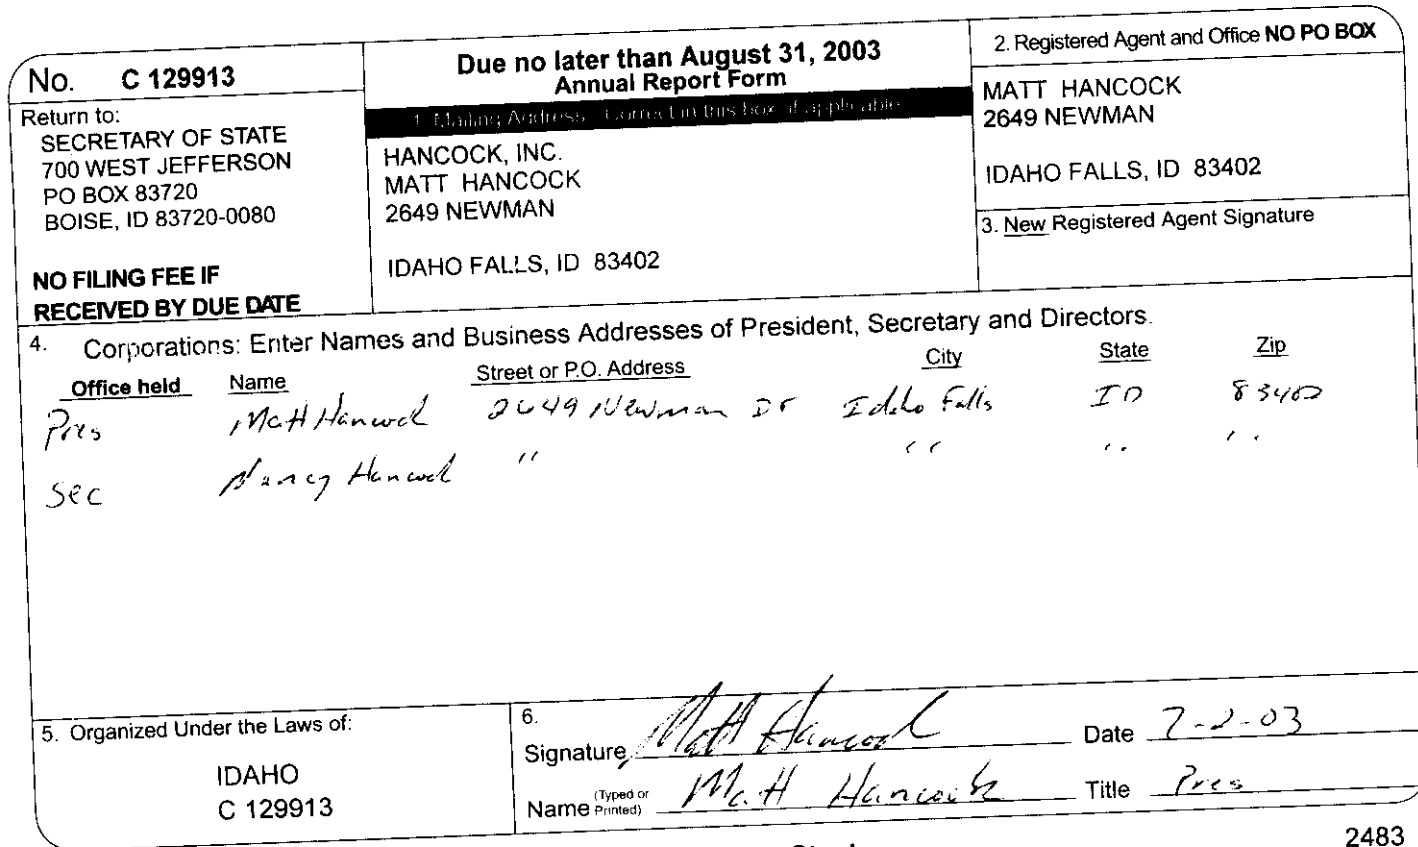 No. C 129913
Return to:
SECRETARY OF STATE
700 WEST JEFFERSON
PO BOX 83720
BOISE, ID 83720-0080
NO FILING FEE IF
RECEIVED BY DUE DATE
Due no later than August 31, 2003
Annual Report Form
1. Mailing Address: Correct in this box, if applicable.
HANCOCK, INC.
MATT HANCOCK
2649 NEWMAN
IDAHO FALLS, ID 83402
2. Registered Agent and Office NO PO BOX
MATT HANCOCK
2649 NEWMAN
IDAHO FALLS, ID 83402
3. New Registered Agent Signature
4. Corporations: Enter Names and Business Addresses of President, Secretary and Directors.
Office held Name Street or P.O. Address City State Zip
Pres Matt Hancock 2649 Newman Dr Idaho Falls ID 83402
Sec Nancy Hancock " " " "
5. Organized Under the Laws of:
IDAHO
C 129913
6.
Signature Matt Hancock Date 7-2-03
Name (Typed or Printed) Matt Hancock Title Pres
2483